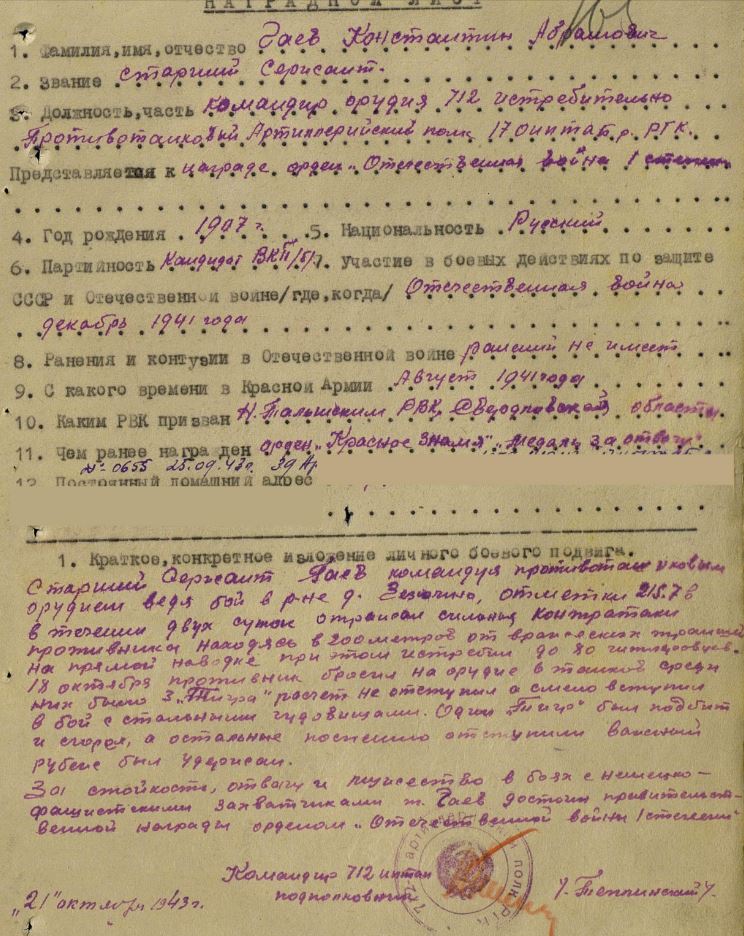 НАГРАДНОЙ ЛИСТ
1. Фамилия,имя,отчество Гаев Константин Абрамович
2. Звание старший Сержант.
3. Должность,часть командир орудия 712 истребительно
Противотанковый Артиллерийский полк 17 оиптабр. РГК.
Представляется к награде орден „Отечественная война 1 степени
4. Год рождения 1907 г. 5. Национальность Русский
6. Партийность Кандидат ВКП/б/ 7. Участие в боевых действиях по защите
СССР и Отечественной войне/где,когда/ Отечественная война
декабрь 1941 года
8. Ранения и контузии в Отечественной войне ранений не имеет
9. С какого времени в Красной Армии Август 1941 года
10. Каким РВК призван Н. РВК, Свердловской области
11. Чем ранее награжден орден „Красное Знамя" „медаль за отвагу"
№ 0655 25.09.43г. 39
12. Постоянный домашний адрес
1. Краткое,конкретное изложение личного боевого подвига.
Старший Сержант Гаев командуя противотанковым
орудием ведя бой в р-не д. отметки 215.7 в
в течении двух суток отражал сильные контратаки
противника находясь в 200 метров от вражеских траншей
на прямой наводке при этом истребил до 80 гитлеровцев.
18 октября противник бросил на орудие 8 танков среди
них было 3 „Тигра" расчет не отступил а смело вступил
в бой с стальными чудовищами. Один „Тигр" был подбит
и сгорел, а остальные поспешно отступили важный
рубеж был удержан.
За стойкость, отвагу и мужество в боях с немецко-
фашистскими захватчиками т. Гаев достоин правительст-
венной награды орденом „Отечественной войны 1 степени"
Командир 712 иптап
подполковник /Теплинский/.
„21" октября 1943 г.